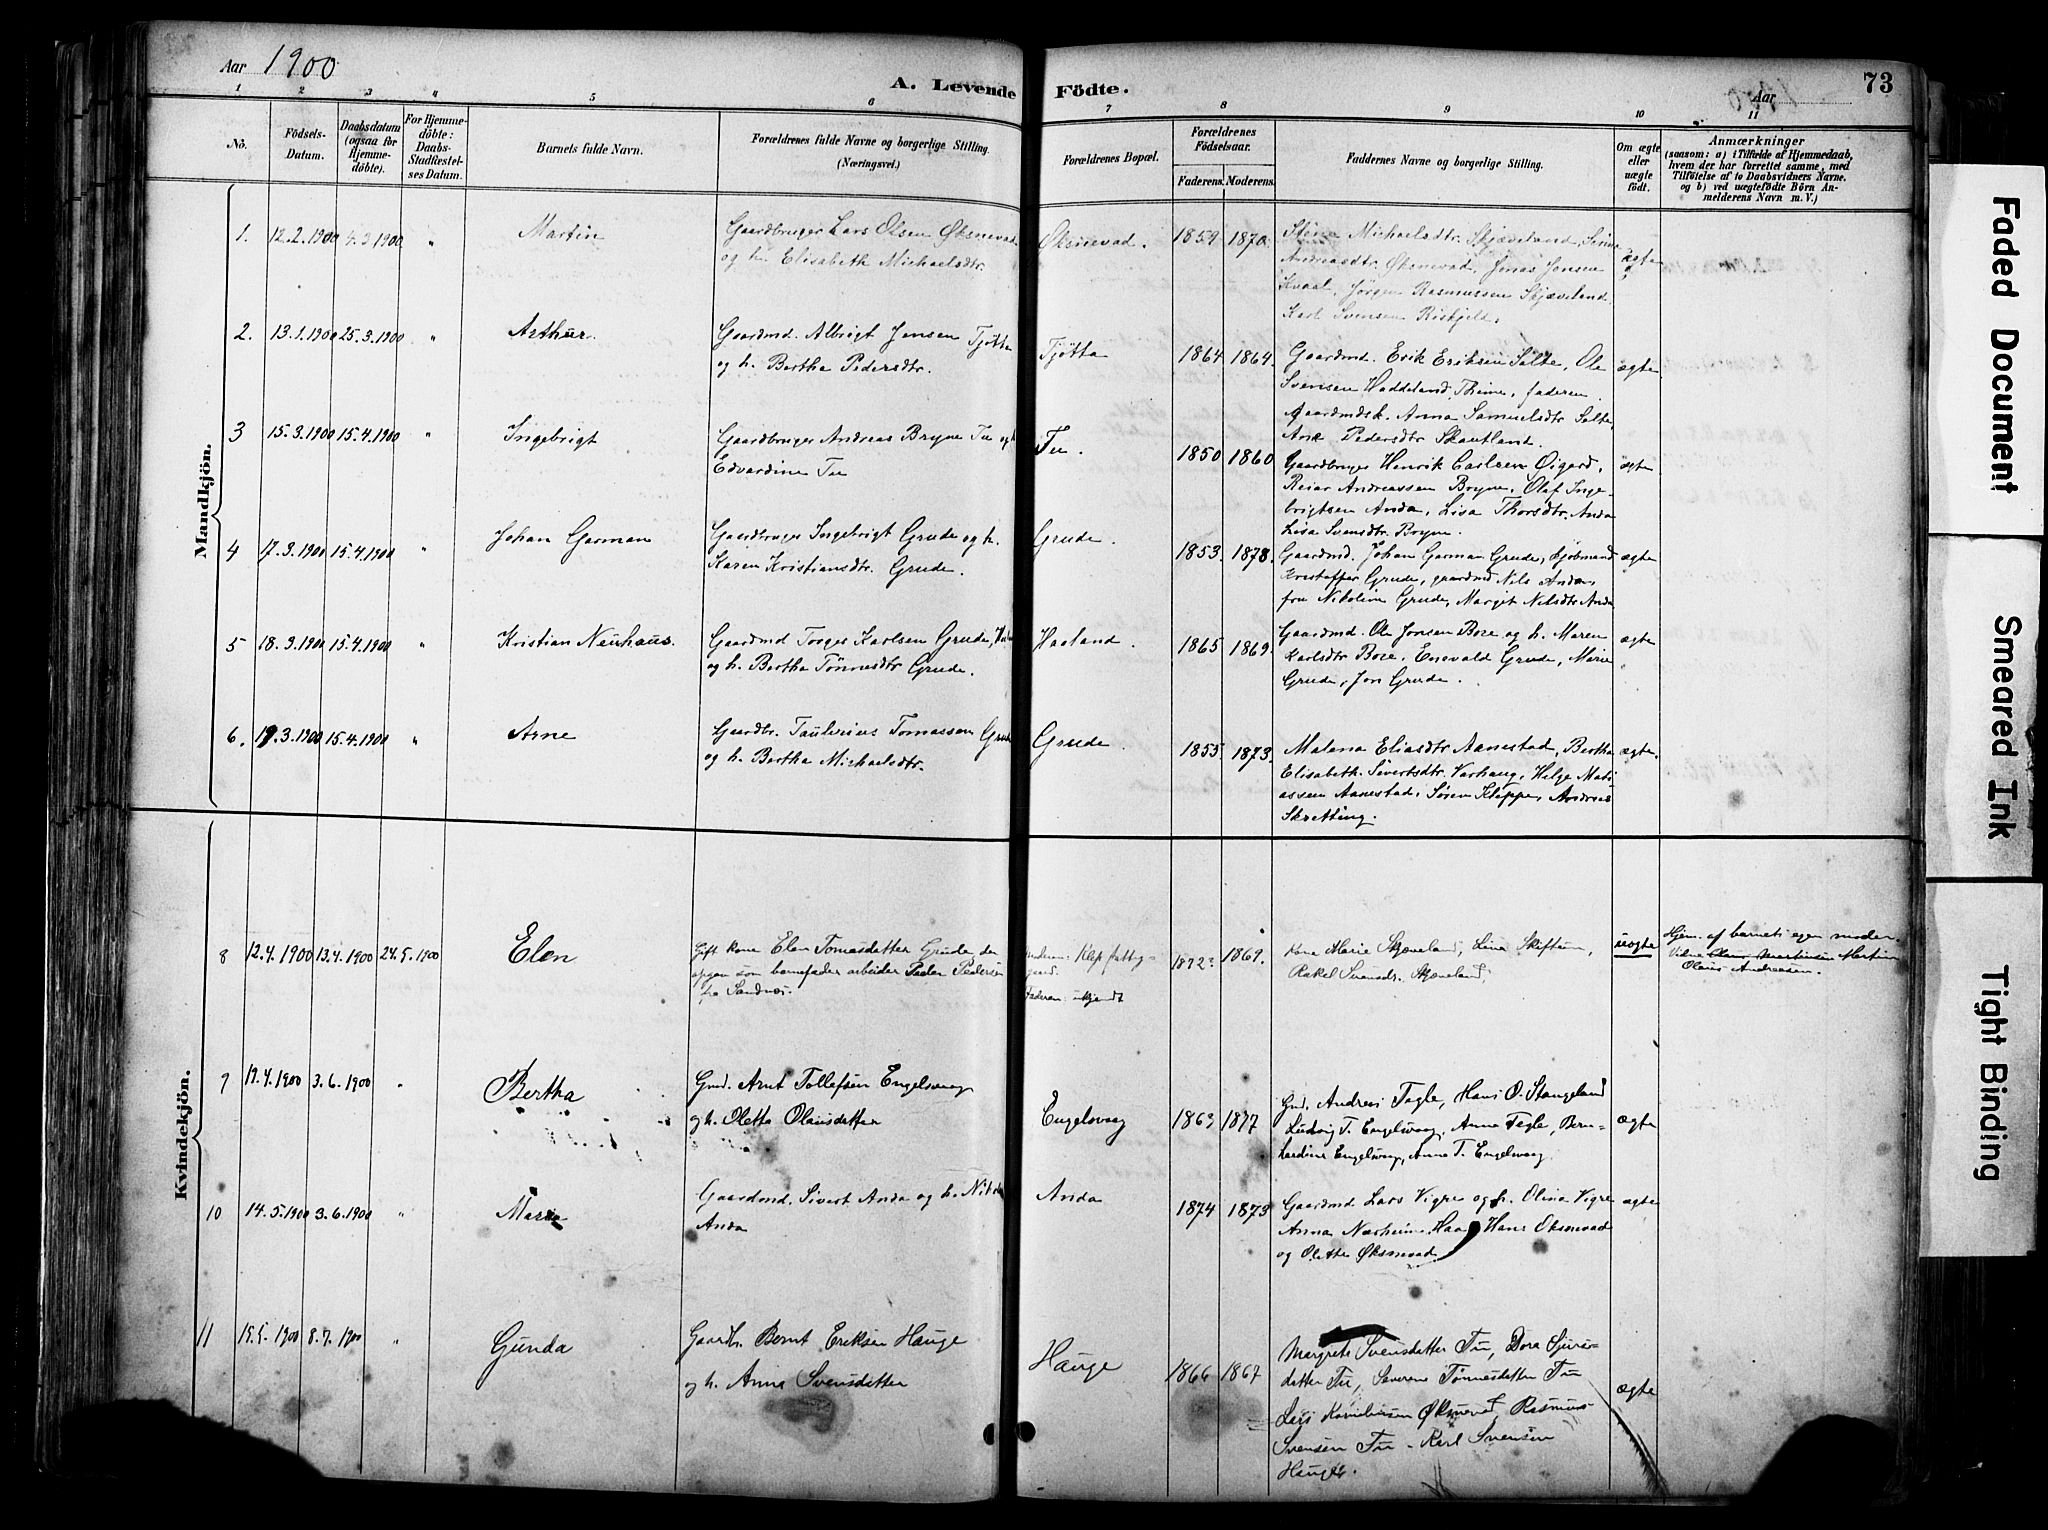 Aar 1900
A. Levende Födte.
Aar
73
1 2 3 4 5 6 7 8 9 10 11
No.
Födsels-
Datum.
Daabsdatum
(ogsaa for
Hjemme-
döbte).
For Hjemme-
döbte:
Daabs-
Stadfæstel-
ses Datum.
Barnets fulde Navn.
Forældrenes fulde Navne og borgerlige Stilling.
(Næringsvei.)
Forældrenes Bopæl.
Forældrenes
Födselsaar.
Faderens. Moderens.
Faddernes Navne og borgerlige Stilling.
Om ægte
eller
uægte
födt.
Anmærkninger
(saasom: a) i Tilfælde af Hjemmedaab,
hvem der har forrettet samme, med
Tilföielse af to Daabsvidners Navne.
og b) ved uægtefödte Börn An-
melderens Navn m. V.)
Mandkjön.
1. 12.2.1900 4.3.1900 " Martin
Gaardbruger Lars Olsen Øksnevad
og h. Elisabeth Michaelsdtr.
Øksnevad. 1859 1870
Michaelsdtr. Skjæveland,
Andreasdtr. Øksnevad, Jonas Jonsen
Kvaal, Jörgen Rasmussen Skjæveland
Karl Svensen
ægte
2. 13.1.1900 25.3.1900 " Arthur.
Gaardmd. Albrigt Jensen Tjötta
og h. Bertha Pedersdtr.
Tjötta 1864 1864.
Gaardmd. Erik Eriksen Salte, Ole
Svensen Haddeland, Thime, faderen.
Gaardmdsk. Anna Samuelsdtr Salte,
Ane Pedersdtr Skautland.
ægte
3 15.3.1900 15.4.1900 " Ingebrigt
Gaardbruger Andreas Bryne Tu og h
Edvardine Tu
Tu. 1850 1860
Gaardbruger Henrik Carlsen Øigard,
Reiar Andreassen Bryne, Olaf Inge-
brigtsen Anda, Lisa Thorsdtr. Anda
Lisa Svensdtr. Bryne.
ægte
4 17.3.1900 15.4.1900 " Johan Garman
Gaardbruger Ingebrigt Grude og h.
Karen Kristiansdtr. Grude.
Grude. 1853. 1878.
Gaardmd. Johan Garman Grude, kjöbmand
Kristoffer Grude, gaardmd Nils Anda,
fru Nikoline Grude, Margit Nilsdtr. Anda
ægte
5 18.3.1900 15.4.1900 " Kristian Neuhaus.
Gaardmd Torger Karlsen Grude,
og h. Bertha Tönnesdtr Grude.
Haaland. 1865 1869.
Gaardmd. Ole Jonsen Bore og h. Maren
Karlsdtr Bore, Enevald Grude, Marie
Grude, Jon Grude.
ægte
6. 19.3.1900 15.4.1900 " Arne
Gaardbr. Taulerius Tomassen Grude
og h. Bertha Michaelsdtr.
Grude. 1855. 1873.
Malena Eliasdtr Aanestad, Bertha
Elisabeth Sivertsdtr. Varhaug, Helge Mati-
assen Aanestad, Sören Kleppe, Andreas
Skretting.
ægte.
Kvindekjön.
8 12.4.1900 13.4.1900 24.5.1900 Elen
Gift kone Elen Tomasdatter Grude der
opgav som barnefader arbeider Peder Pedersen
fra Sandnæs.
Moderen: Klep fattig-
gaard.
Faderen: ukjendt
1872? 1869.
Kone Marie Skjæveland, Lina
Rakel Svensdr. Skjæveland.
uægte
Hjem. af barnets egen moder.
Vidne Martin
Olaus Andreasen.
9 19.4.1900 3.6.1900 " Bertha
Gmd. Arnt Tollefsen Engelsvaag
og h. Oletta Olausdatter
Engelsvaag 1863 1877
Gmd. Andreas Fagle, Hans O. Stangeland
Ludvig T. Engelsvaag, Anna Fagle, Bern-
hardine Engelsvaag, Anna T. Engelsvaag.
ægte
10 14.5.1900 3.6.1900 " Marie
Gaardmd. Sivert Anda og h.
Anda
Anda 1874 1873
Gaardmd Lars Vigre og h. Olina Vigre
Anna Nærheim, Hans Øksnevad
og Olette Øksnevad
ægte
11 15.5.1900 8.7.1900 " Gunda
Gaardbr. Bernt Eriksen Hauge
og h. Anna Svensdatter
Hauge 1866 1867
Margrete Svensdatter Tu, Dora Sjurs-
datter Tu, Severine Tönnesdatter Tu
Lars Korneliussen Øksnevad, Rasmus
Svensen Tu - Karl Svensen
Hauge.
ægte
Faded Document
Smeared Ink
Tight Binding